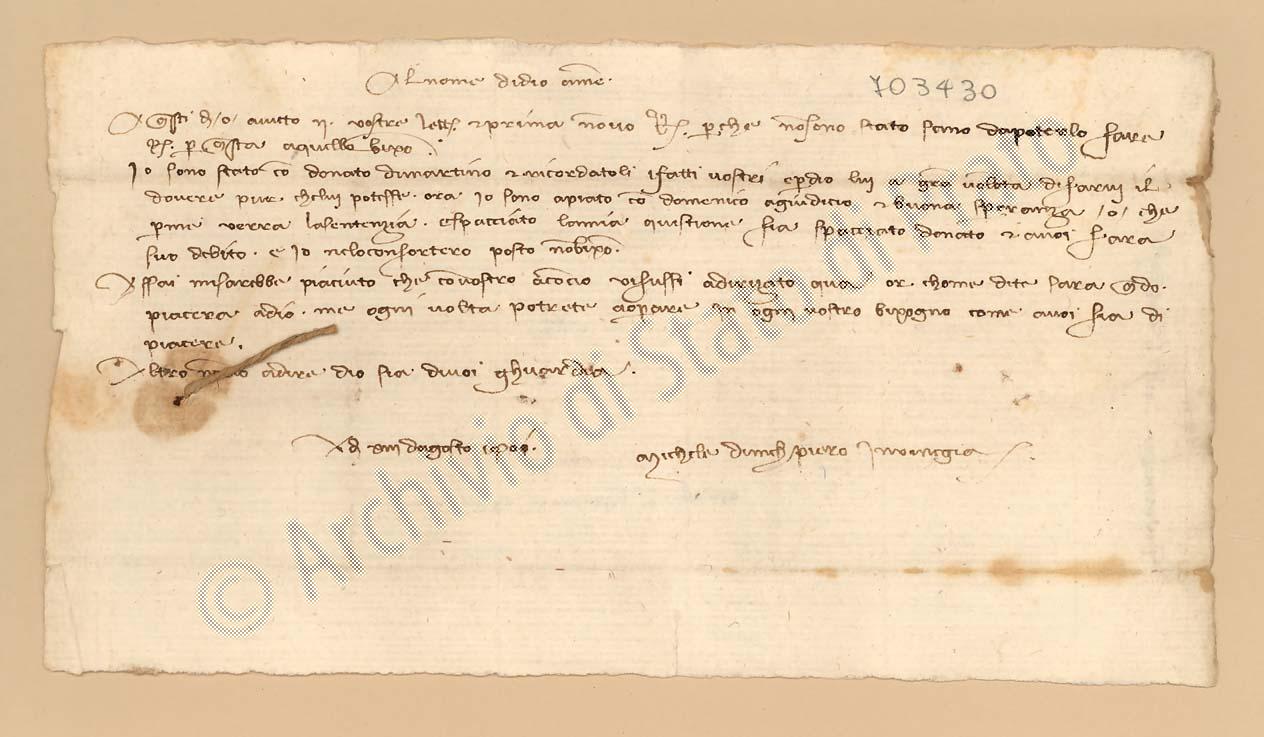 Al nome didio ame.
703430
Questi d /o/ auuto ii. vostre lett. et prima nonvo R. perche nonsono stato sano dapoterlo fare
R. per questa aquello bixo.
Io sono stato co donato dimartino et ricordatoli ifatti vostri eperdio lui a gra volota difarui il
douere pur chelui potesse. ora io sono apiato co domenico agiudicio et buona speranza /o/ che
perme verra lasentenzia. espacciato lamia questione sia spacciato donato et auoi fara
suo debito. e io neloconfortero posto nobixo.
Assai misarebbe piaciuto che convostro acocio vifussi adirizato qua or chome dite sara qdo.
piacera adio. me ogni volta potrete adoperare in ogni vostro bixogno come auoi sia di
piacere.
Altro adire dio sia divoi ghuardia.
Ad dagosto
Michele piero
© Archivio di Stato di Prato